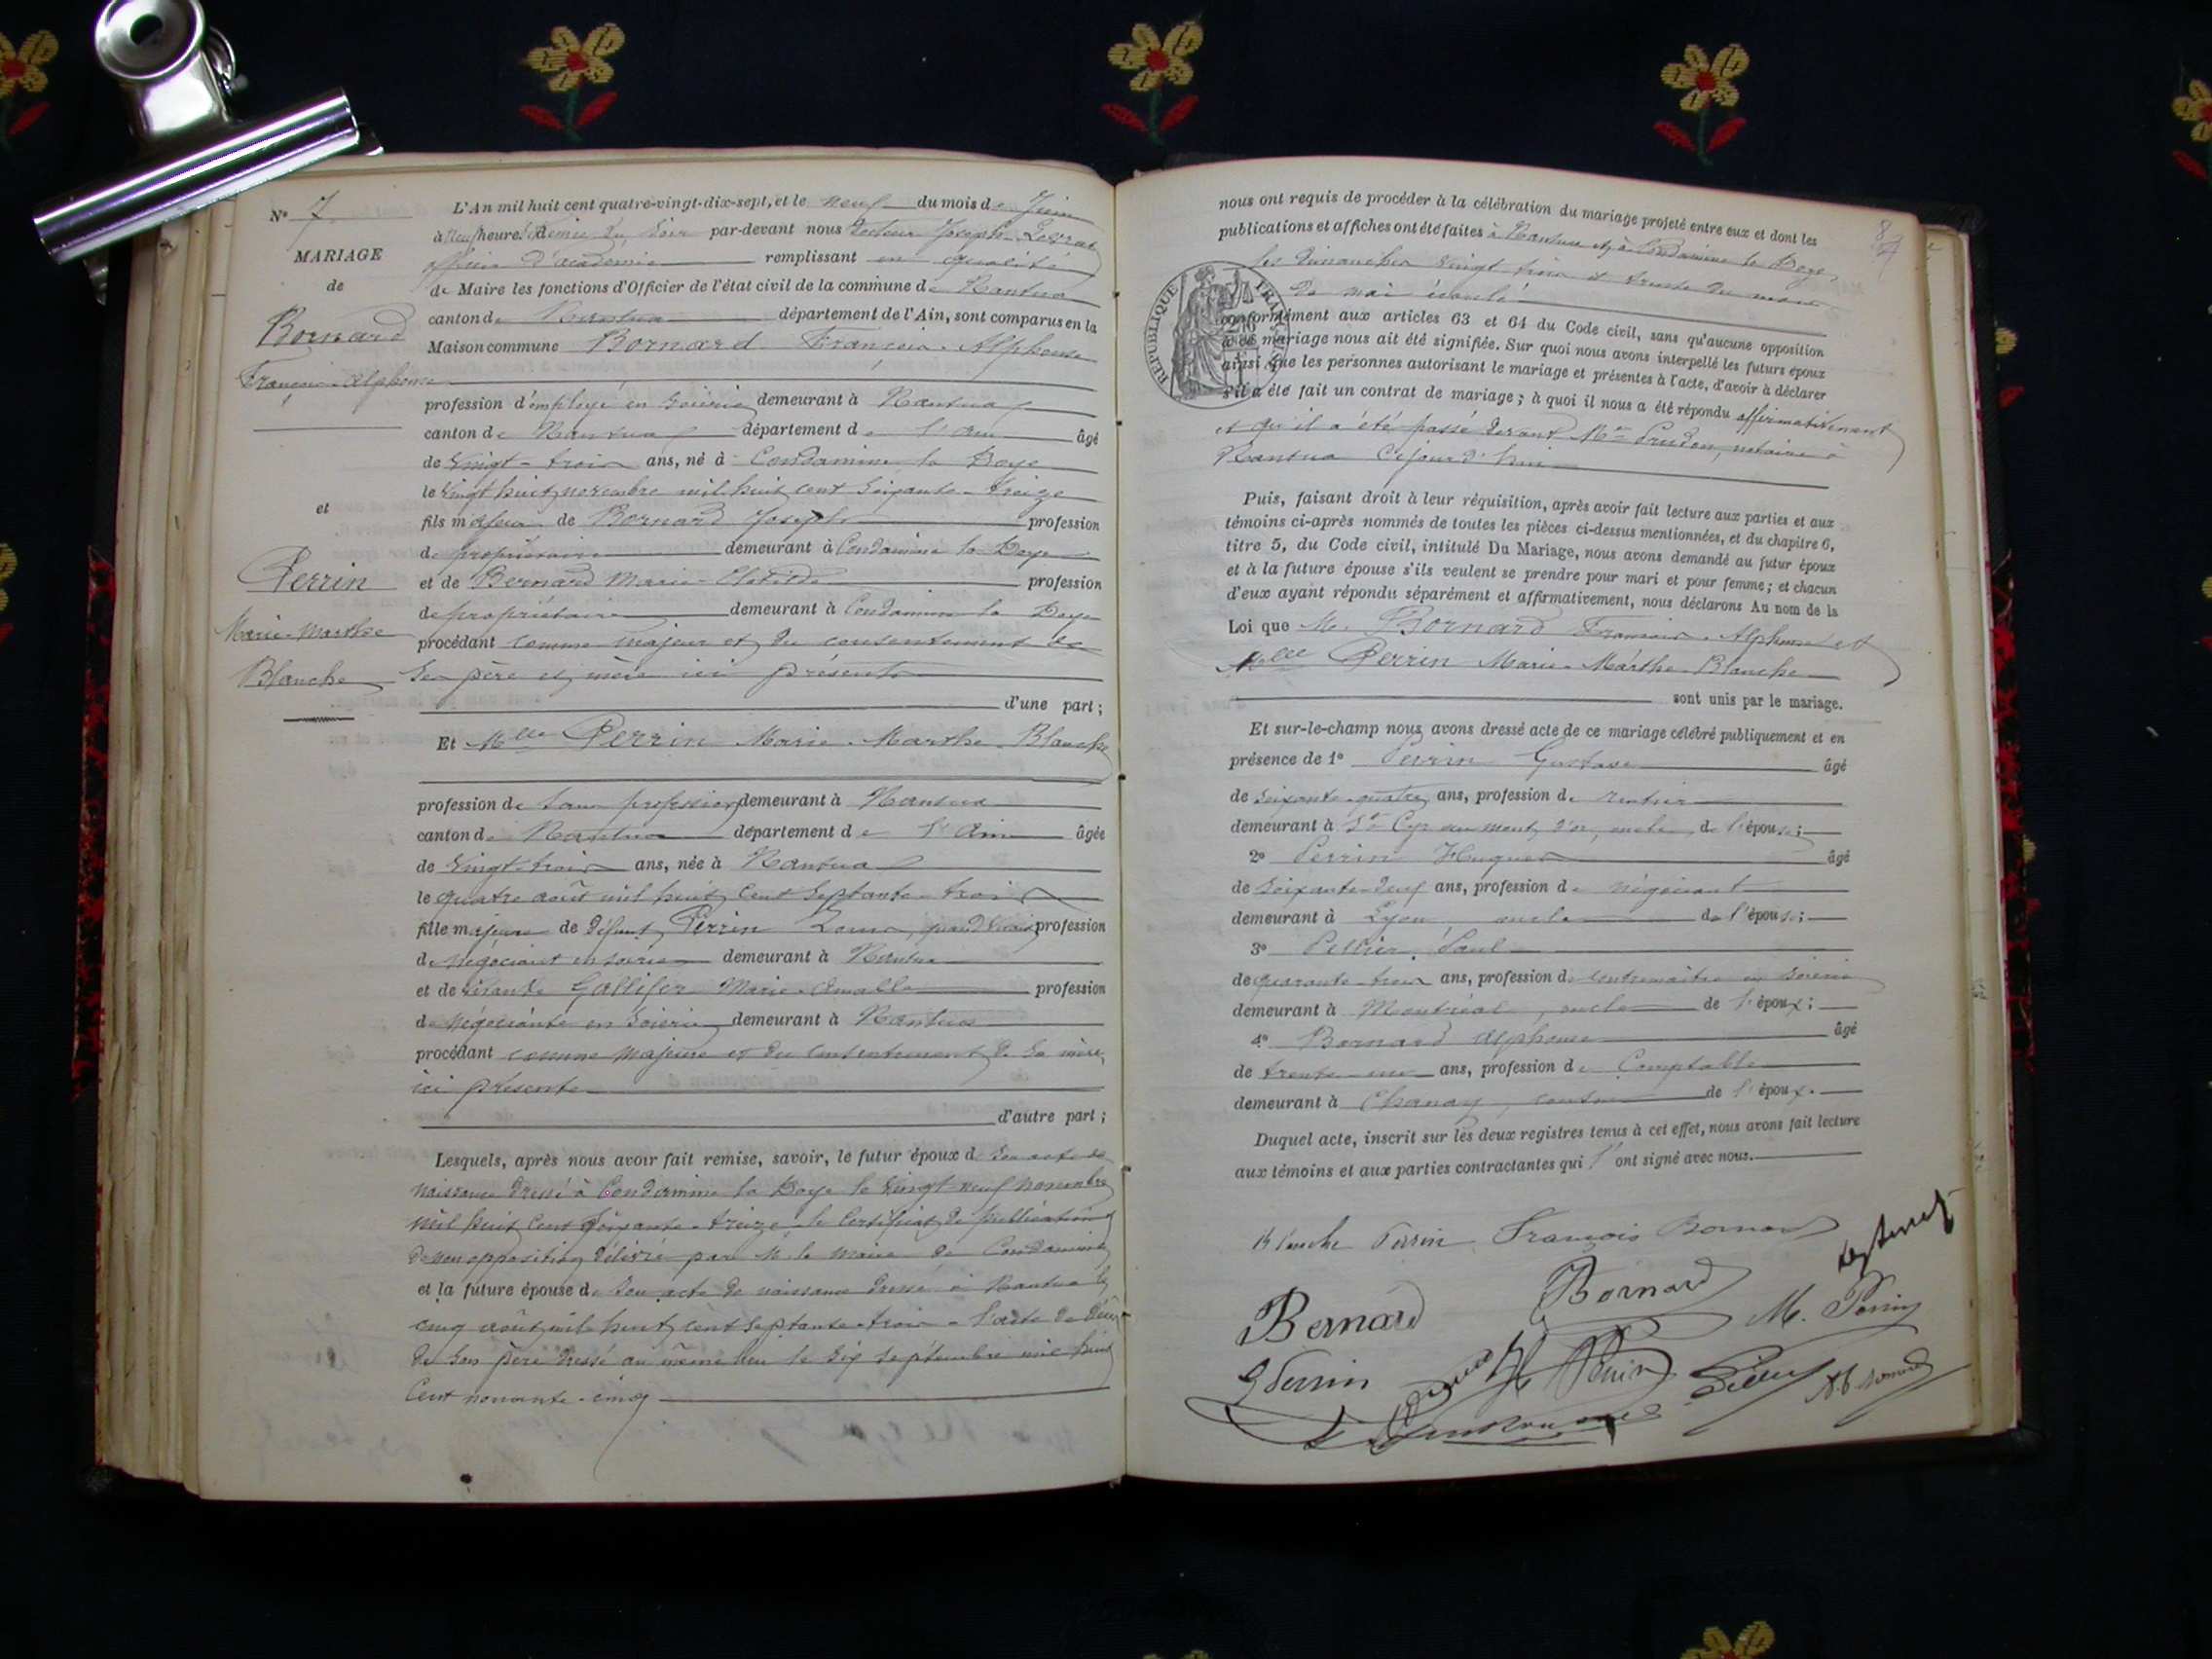 N° 7
MARIAGE
de
Bornard
François-Alphonse
et
Perrin
Marie-Marthe
Blanche
L'An mil huit cent quatre-vingt-dix-sept, et le neuf du mois de Juin
à neuf heures demie du soir par-devant nous Docteur Joseph Levrat
officier d'académie remplissant en qualité
de Maire les fonctions d'Officier de l'état civil de la commune de Nantua
canton de Nantua département de l'Ain, sont comparus en la
Maison commune Bornard François-Alphonse
profession d'employé en soierie demeurant à Nantua
canton de Nantua département de l'Ain âgé
de vingt-trois ans, né à Condamine la Doye
le vingt huit novembre mil huit cent soixante-treize
fils majeur de Bornard Joseph profession
de propriétaire demeurant à Condamine la Doye
et de Bernard Marie-Clotilde profession
de propriétaire demeurant à Condamine la Doye
procédant comme majeur et du consentement de
ses père et mère ici présents
d'une part ;
Et Mlle Perrin Marie-Marthe-Blanche
profession de sans profession demeurant à Nantua
canton de Nantua département de l'Ain âgée
de vingt-trois ans, née à Nantua
le quatre août mil huit cent septante-trois
fille majeure de défunt Perrin Louis, quand vivait profession
de négociant en soierie demeurant à Nantua
et de vivante Gallifer Marie-Amalle profession
de négociante en soierie demeurant à Nantua
procédant comme majeure et du consentement de sa mère,
ici présente
d'autre part ;
Lesquels, après nous avoir fait remise, savoir, le futur époux de son acte de
naissance dressé à Condamine la Doye le vingt-neuf novembre
mil huit cent soixante-treize, le certificat de publication
de non opposition délivré par M. le Maire de Condamine
et la future épouse de son acte de naissance dressé à Nantua le
cinq août mil huit cent septante-trois - l'acte de décès
de son père dressé au même lieu le six septembre mil huit
cent nonante-cinq
8
nous ont requis de procéder à la célébration du mariage projeté entre eux et dont les
publications et affiches ont été faites à Nantua et à Condamine la Doye,
les dimanches vingt trois et trente du mois
de mai écoulé
RÉPUBLIQUE FRANÇAISE
conformément aux articles 63 et 64 du Code civil, sans qu'aucune opposition
à ce mariage nous ait été signifiée. Sur quoi nous avons interpellé les futurs époux
ainsi que les personnes autorisant le mariage et présentes à l'acte, d'avoir à déclarer
s'il a été fait un contrat de mariage ; à quoi il nous a été répondu affirmativement
et qu'il a été passé devant Me Prudon, notaire à
Nantua Cejourd'hui
Puis, faisant droit à leur réquisition, après avoir fait lecture aux parties et aux
témoins ci-après nommés de toutes les pièces ci-dessus mentionnées, et du chapitre 6,
titre 5, du Code civil, intitulé Du Mariage, nous avons demandé au futur époux
et à la future épouse s'ils veulent se prendre pour mari et pour femme ; et chacun
d'eux ayant répondu séparément et affirmativement, nous déclarons Au nom de la
Loi que M. Bornard François-Alphonse et
Mlle Perrin Marie-Marthe-Blanche
sont unis par le mariage.
Et sur-le-champ nous avons dressé acte de ce mariage célébré publiquement et en
présence de 1° Perrin Gustave âgé
de soixante-quatre ans, profession de rentier
demeurant à St Cyr au mont d'or, oncle de l'épouse ;
2° Perrin Hugues âgé
de soixante-deux ans, profession de négociant
demeurant à Lyon, oncle de l'épouse ;
3° Pellier Paul
de quarante-trois ans, profession de contremaître en soierie
demeurant à Montréal, oncle de l'époux ;
4° Bornard Alphonse âgé
de trente-un ans, profession de Comptable
demeurant à Chanay, cousin de l'époux.
Duquel acte, inscrit sur les deux registres tenus à cet effet, nous avons fait lecture
aux témoins et aux parties contractantes qui l'ont signé avec nous.
Blanche Perrin François Bornard
Bernard Bornard M. Perrin
G Perrin H Perrin